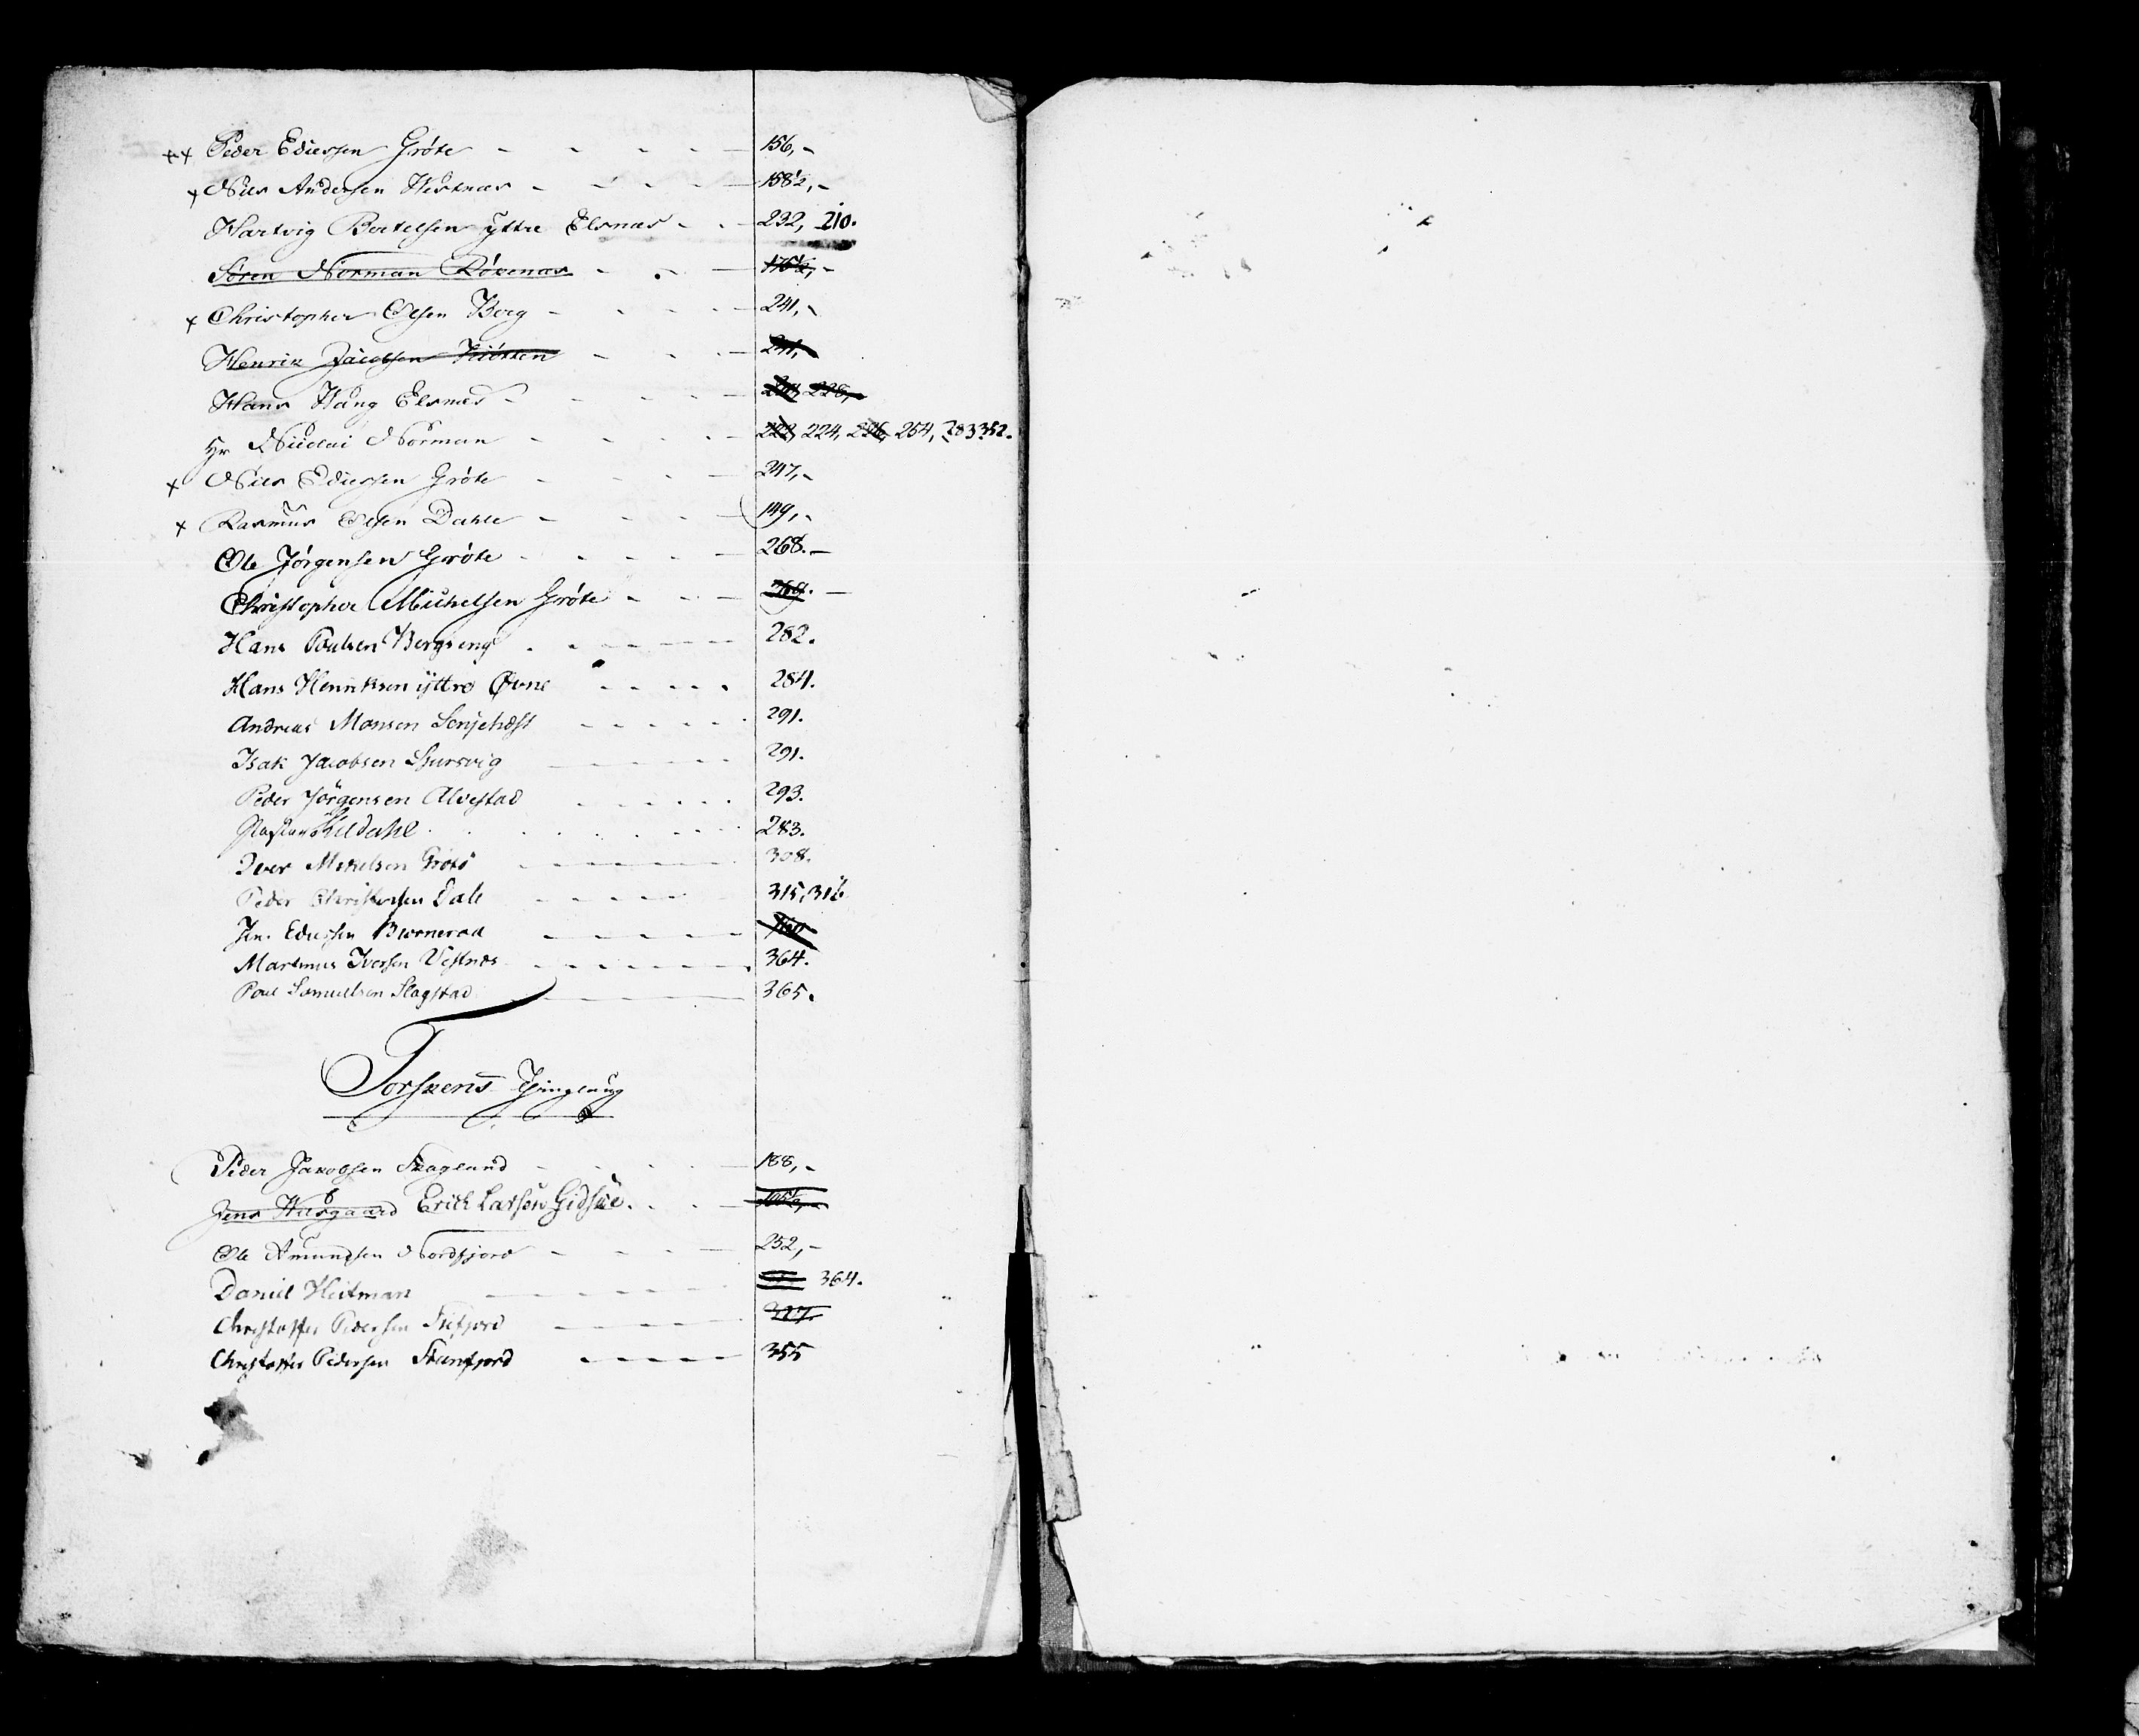 ++ Peder Ediessen Grøte - - - - 156,-
+ Nils Andersen Westnæs - - - - 158½,-
Hartvig Bertelsen yttre Elsnæs - - 232, 210.
Søren Norman Røkenæs - - - 176½,-
+ Christopher Olsen Berg - - - - 241,-
Henrik Jacobsen - - - 241,
Hans Haug Elsnæs - - - - 228,
Hr Nicolai Norman - - - - 222, 224, 226, 254, 283 352.
+ Nils Ediessen Grøte - - - - 247,-
+ Rasmus Olsen Dahle - - - - 149,-
Ole Jørgensen Grøte - - - - 268.-
Christopher Michelsen Grøte - - - 269.-
Hans Poulsen Bergseng - - - - 282.
Hans Henriksen yttre Øvne - - - - 284.
Andreas Monsen Senjehest - - - - 291.
Isak Jacobsen Sjursvig - - - - 291.
Peder Jørgensen Alvestad - - - - 293.
Kildahl - - - - 283.
Iver Mikelsen Grøtø - - - - 308.
Peder Christensen Dale - - - - 315, 316
Jens Ediessen - - - -
Martinus Iversen Vestnæs - - - - 364.
Poul Samuelsen Slagstad - - - - 365.
Torskens Thinglaug
Peder Jakobsen Skagland - - - - 188,-
Jens Husgaard Erich Larsen Gidske - - - 195½,-
Ole Amundsen Nordfjord - - - - 252,-
Daniel Heitman - - - - 364.
Christoffer Pedersen - - - - 327.
Christoffer Pedersen - - - - 355